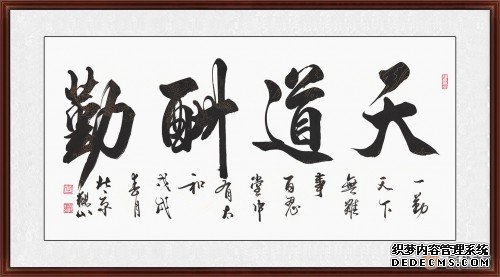 天道酬勤
一勤
天下
無難
事
百忍
堂中
有太
和
戊戌
春月
北京
织梦内容管理系统
DEDECMS.COM